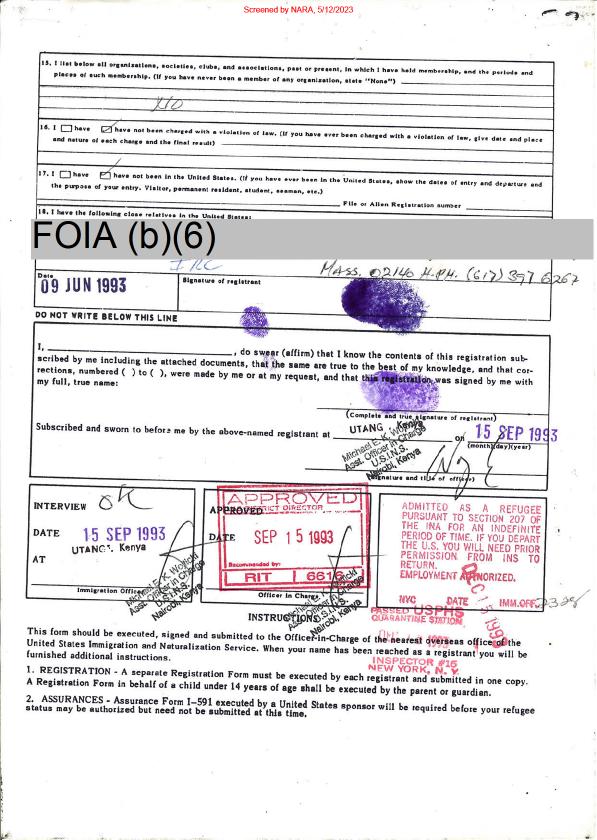 Screened by NARA, 5/12/2023
15. I list below all organizations, societies, clubs, and associations, past or present, in which I have held membership, and the periods and
places of such membership. (If you have never been a member of any organization, state "None")
NO
16. I have have not been charged with a violation of law. (If you have ever been charged with a violation of law, give date and place
and nature of each charge and the final result)
17. I have have not been in the United States. (If you have ever been in the United States, show the dates of entry and departure and
the purpose of your entry. Visitor, permanent resident, student, seaman, etc.)
File or Alien Registration number
18. I have the following close relatives in the United States:
FOIA (b)(6)
MASS. 02140 H.PH. (617) 397 6267
Date
09 JUN 1993
Signature of registrant
DO NOT WRITE BELOW THIS LINE
I, , do swear (affirm) that I know the contents of this registration sub-
scribed by me including the attached documents, that the same are true to the best of my knowledge, and that cor-
rections, numbered ( ) to ( ), were made by me or at my request, and that this registration was signed by me with
my full, true name:
(Complete and true signature of registrant)
Subscribed and sworn to before me by the above-named registrant at UTANGO, Kenya on 15 SEP 1993
(month)(day)(year)
Asst. Officer in Charge
U.S.I.N.S.
Nairobi, Kenya
(Signature and title of officer)
INTERVIEW OK
DATE 15 SEP 1993
UTANGO, Kenya
AT
Immigration Officer
Asst. Officer in Charge
U.S.I.N.S.
Nairobi, Kenya
APPROVED
APPROVED
DISTRICT DIRECTOR
DATE SEP 15 1993
Recommended by:
RIT 6616
Officer in Charge
U.S.I.N.S.
Nairobi, Kenya
ADMITTED AS A REFUGEE
PURSUANT TO SECTION 207 OF
THE INA FOR AN INDEFINITE
PERIOD OF TIME. IF YOU DEPART
THE U.S. YOU WILL NEED PRIOR
PERMISSION FROM INS TO
RETURN.
EMPLOYMENT AUTHORIZED.
DEC 15 1993
NYC DATE IMM.OFF.
PASSED USPHS
QUARANTINE STATION
INSPECTOR #16
NEW YORK, N. Y.
INSTRUCTIONS
This form should be executed, signed and submitted to the Officer-in-Charge of the nearest overseas office of the
United States Immigration and Naturalization Service. When your name has been reached as a registrant you will be
furnished additional instructions.
1. REGISTRATION - A separate Registration Form must be executed by each registrant and submitted in one copy.
A Registration Form in behalf of a child under 14 years of age shall be executed by the parent or guardian.
2. ASSURANCES - Assurance Form I-591 executed by a United States sponsor will be required before your refugee
status may be authorized but need not be submitted at this time.